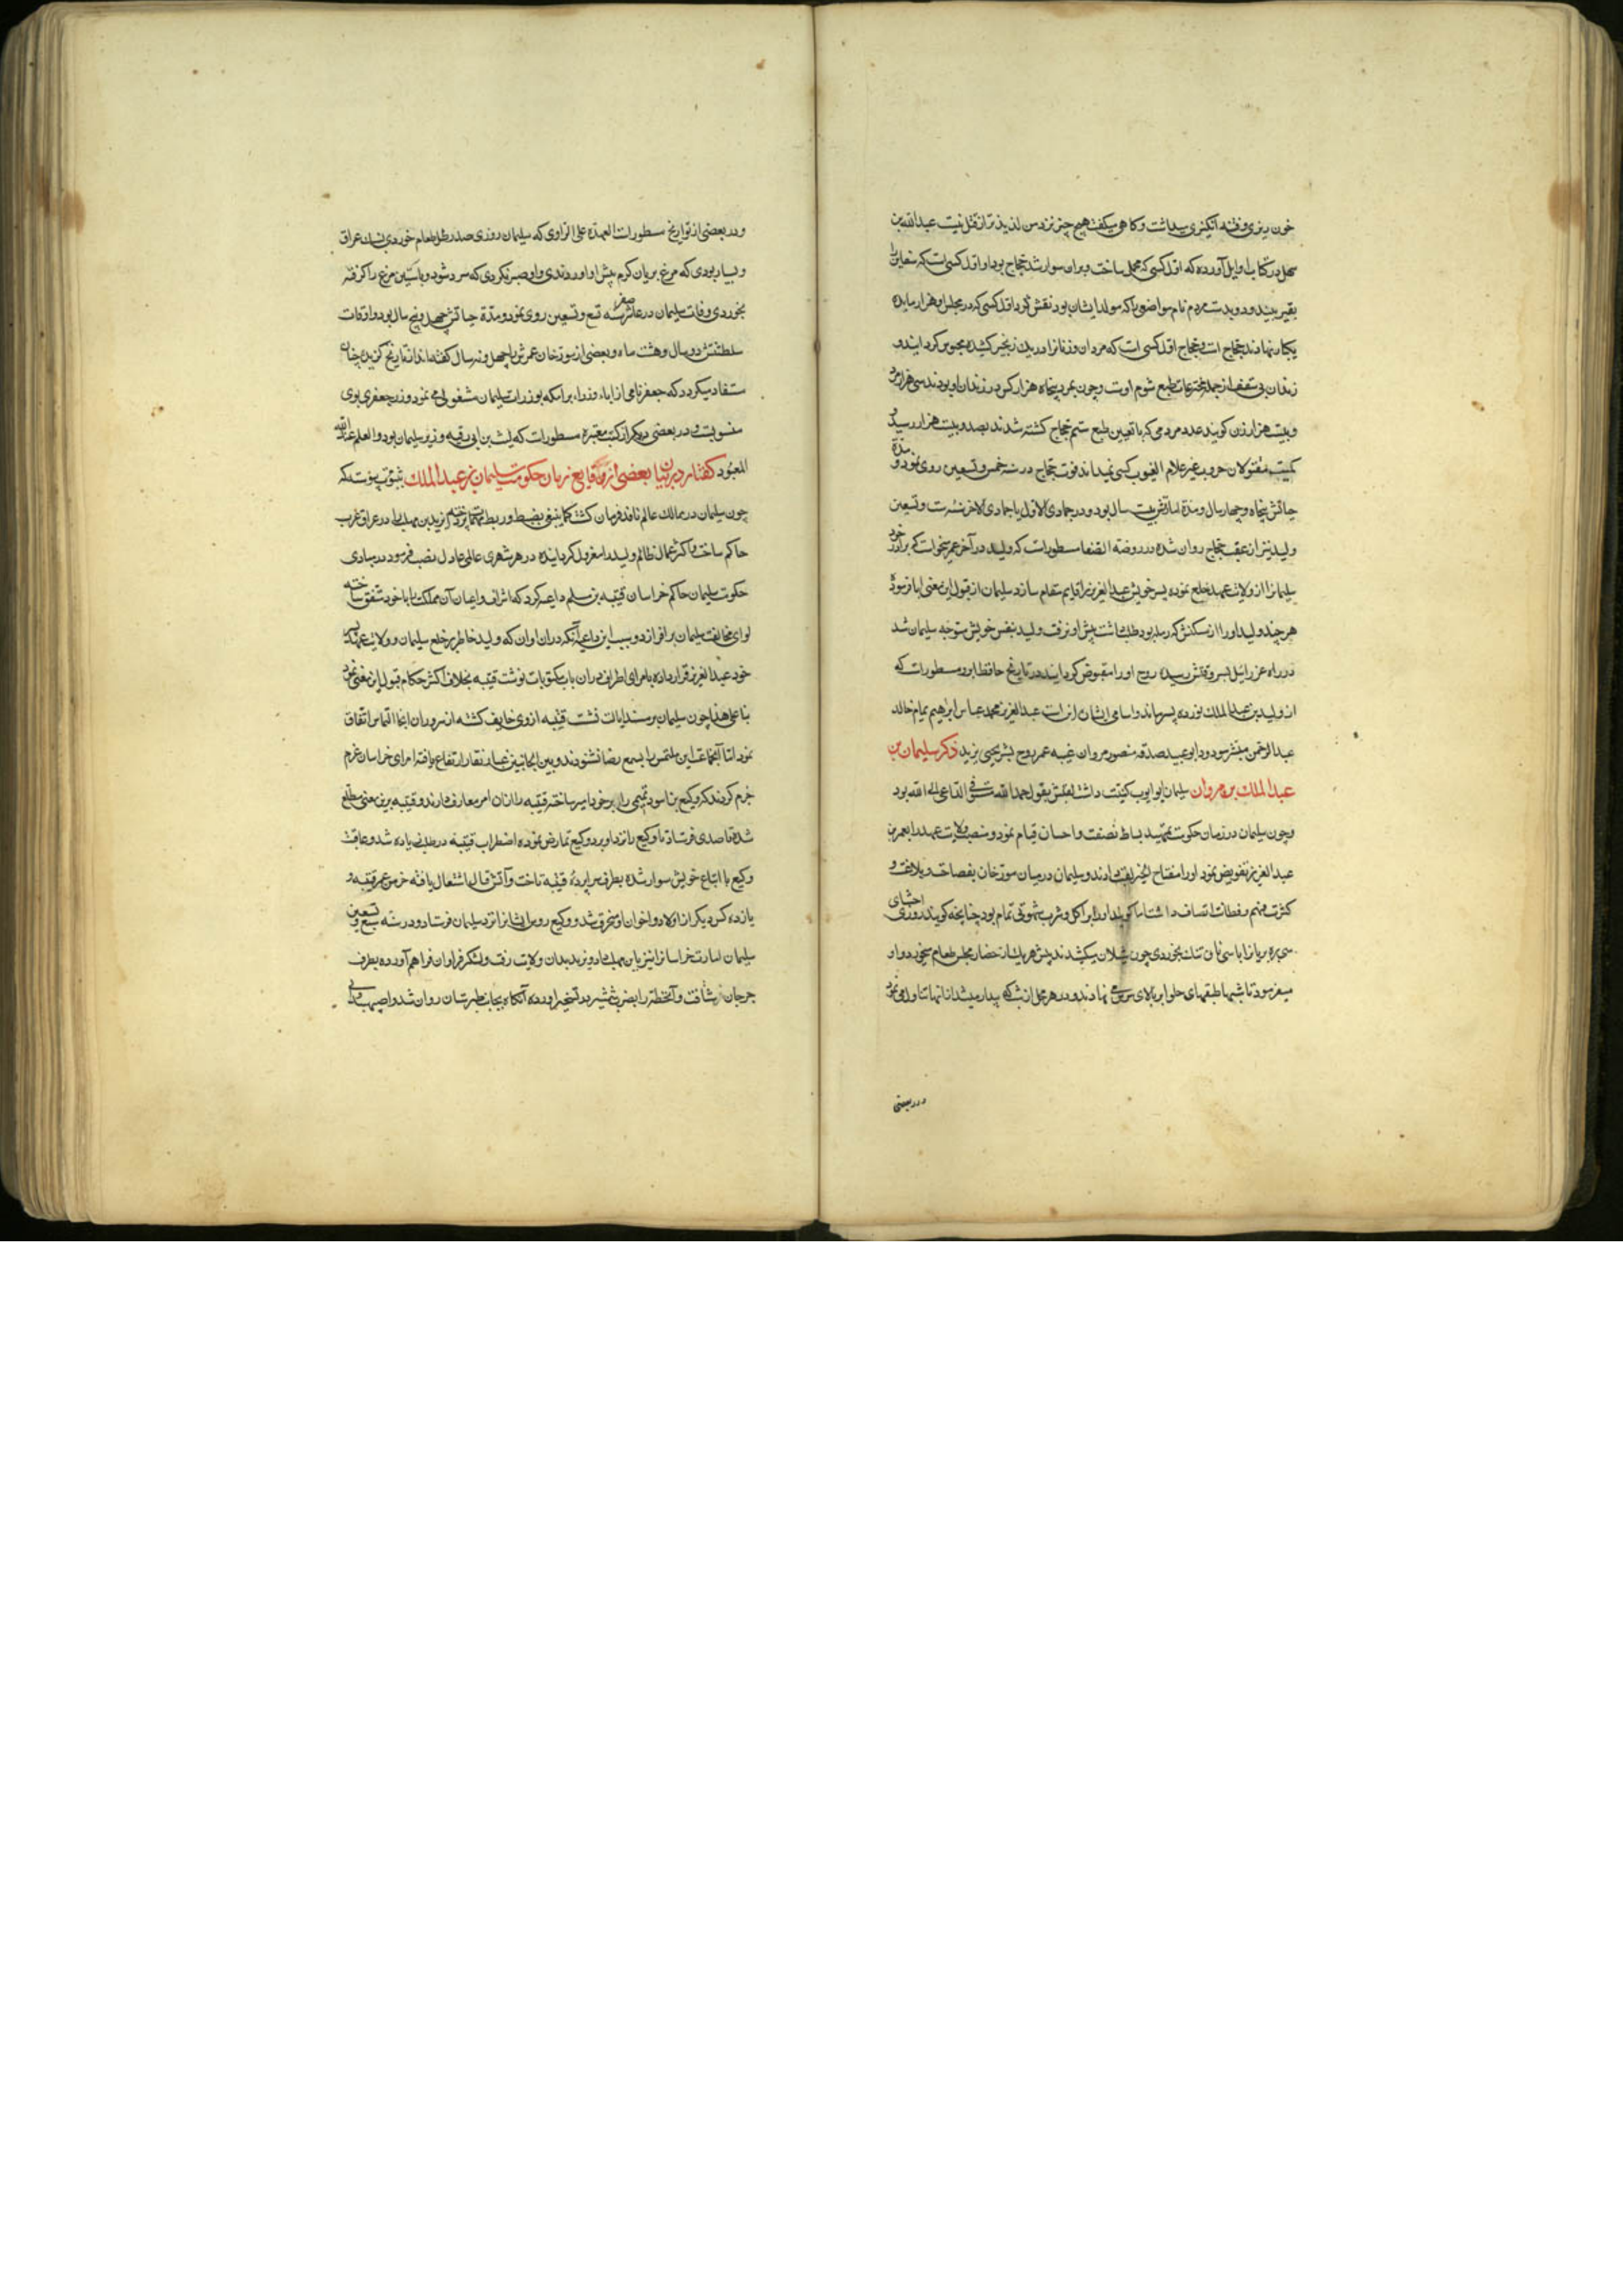 خون ریزی و فتنه انگیزی میداشت و کاهی میکفت هیچ چیز نزد من لذیذتر از قتل نیست عبدالله بن
سهل در کتاب اوایل آورده که اول کسی که محمل ساخت و بران سوار شد حجاج بود و اول کسی است که
بود نقش کرد اول کسی که در مجلس او هزار مایده
یکبار نهادند حجاج است و حجاج اول کسی است که مردان و زنانرا در یک زنجیر کشیده محبوس کردانید و
زندان بی سقف از جمله مخترعات طبع شوم اوست و چون بمرد پنجاه هزار کس در زندان او بودند سی هزار مرد
و بیست هزار زن کویند عدد مردمی که با تعیین طبع ستم حجاج کشته شدند بصد و بیست هزار رسید و
کمیت مقتولان حروب غیر علام الغیوب کسی نمیداند فوت حجاج در سنه خمس و تسعین روی نمود و مدة
حیاتش پنجاه و چهار سال و مدة امارتش بیست سال بود و در جمادی الاول یا جمادی الاخر سنه ست و تسعین
ولید نیز از عقب حجاج روان شد و در روضة الصفا مسطورست که ولید در آخر عمر میخواست که برادر خود
سلیمانرا از ولایت عهد خلع نموده پسر خویش عبدالعزیز را قایم مقام سازد سلیمان از قبول این معنی ابا فرمود
هر چند ولید او را از مسکنش که رمله بود طلب داشت پیش او نرفت ولید بنفس خویش متوجه سلیمان شد
در راه عزرائیل بسر وقتش رسیده روح او را مقبوض کردانید در تاریخ حافظ ابرو مسطورست که
از ولید بن عبدالملک نوزده پسر ماند و اسامی ایشان اینست عبدالعزیز محمد عباس ابراهیم تمام خالد
عبدالرحمن مبشر مسرود ابو عبید صدقه منصور مروان عنبسه عمر روح بشر یحیی یزید ذکر سلیمان بن
عبدالملک بن مروان سلیمان ابو ایوب کنیت داشت لقبش بقول حمدالله مستوفی الداعی الی الله بود
و چون سلیمان در زمان حکومت بتمهید بساط نصفت و احسان قیام نمود و منصب ولایت عهد را بعمر بن
عبدالعزیز تفویض نمود او را مفتاح الخیر لقب دادند و سلیمان در میان مورخان بفصاحت و بلاغت و
کثرت فهم و فطانت اتصاف داشت اما او را بر اکل و شرب شهوتی تمام بود چنانچه کویند روزی احشای
سی بره بریانرا با سی نان تنک بخوردی چون شیلان میکشیدند پیش هر یک از حضار مجلس طعام میخورد و او
میفرمود تا شبها طبقهای حلوا بر بالای سرش می نهادند و در هر محل از شب که بیدار میشد از انها تناول می نمود
در بعضی
و در بعضی از تواریخ مسطورست العهدة علی الراوی که سلیمان روزی صد رطل طعام خوردی بسنک عراق
و بسیار بودی که مرغ بریان کرم پیش او آوردندی و او صبر نکردی که سرد شود و با آستین مرغ را کرفته
بخوردی وفات سلیمان در عاشر صفر سنه تسع و تسعین روی نمود و مدة حیاتش چهل و پنج سال بود و اوقات
سلطنتش دو سال و هشت ماه و بعضی از مورخان عمرش را چهل و نه سال کفته اند از تاریخ کزیده چنان
مستفاد میکردد که جعفر نامی از اباء وزراء برامکه بوزارت سلیمان مشغولی می نمود و زر جعفری بوی
منسوبست و در بعضی دیکر از کتب معتبره مسطورست که لیث بن ابی رقیه وزیر سلیمان بود و العلم عند الله
المعبود کفتار در بیان بعضی از وقایع زمان حکومت سلیمان بن عبدالملک بثبوت پیوسته که
چون سلیمان در ممالک عالم نافذ فرمان کشت کما ینبغی بضبط و ربط مهمات پرداخته یزید بن مهلب را در عراق عرب
حاکم ساخت و اکثر عمال ظالم ولید را معزول کردانیده در هر شهری عاملی عادل نصب فرمود در مبادی
حکومت سلیمان حاکم خراسان قتیبه بن مسلم داعیه کرد که اشراف و اعیان آن مملکت را با خود متفق ساخته
لوای مخالفت سلیمان بر افرازد و سبب این داعیه آنکه دران اوان که ولید خاطر بر خلع سلیمان و ولایت عهد پسر
خود عبدالعزیز قرار داده بامرای اطراف دران باب مکتوبات نوشت قتیبه بخلاف اکثر حکام قبول این معنی نمود
بنا علی هذا چون سلیمان بر مسند ایالت نشست قتیبه از وی خایف کشته از سروران انجا التماس اتفاق
نمود اما آنجماعت این ملتمس را بسمع رضا نشنودند و بین الجانبین غبار نقار ارتفاع یافته امرای خراسان عزم
جزم کردند که وکیع بن اسود تمیمی را بر خود امیر ساخته قتیبه را ازان امر معاف دارند و قتیبه برین معنی مطلع
شده قاصدی فرستاد تا وکیع را نزد او برد و وکیع تمارض نموده اضطراب قتیبه در طلب زیاده شد و عاقبت
وکیع با اتباع خویش سوار شده بطرف سراپرده قتیبه تاخت و آتش قتال اشتعال یافته خرمن عمر قتیبه و
یازده کس دیکر از اولاد و اخوان او محترق شد و وکیع روس ایشانرا نزد سلیمان فرستاد و در سنه سبع و تسعین
سلیمان امارت خراسانرا نیز یزید بن مهلب داد و یزید بدان ولایت رفت و لشکر فراوان فراهم آورده بطرف
جرجان شتافت و آنخطه را بضرب شمشیر در تسخیر آورده آنکاه بجانب طبرستان روان شد و اصپهبد